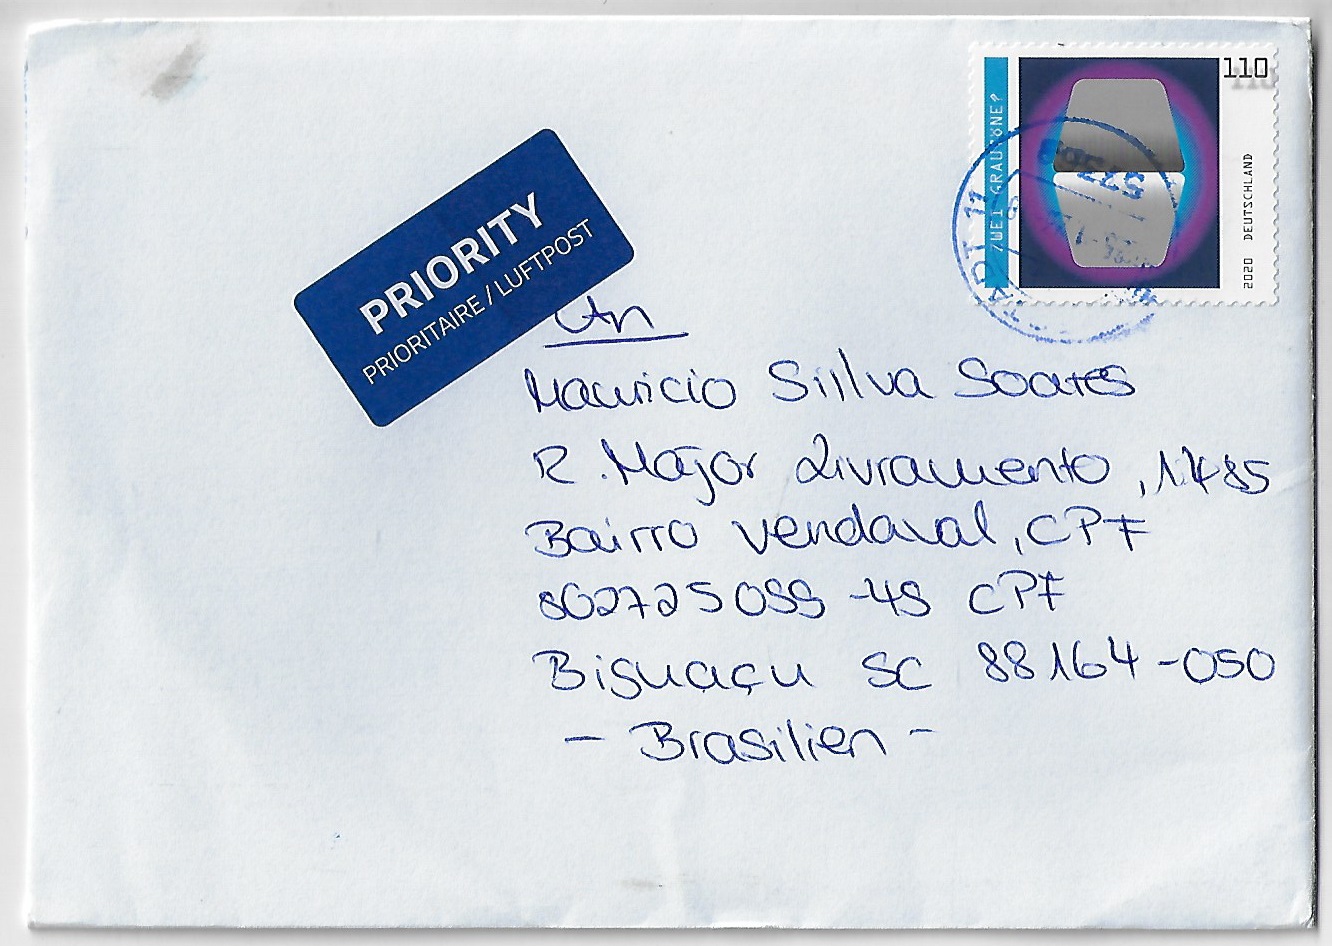 110
ZWEI GRAUTÖNE?
2020 DEUTSCHLAND
PRIORITY
PRIORITAIRE / LUFTPOST
An
Mauricio Siilva Soares
R. Major Livramento, 1485
Bairro Vendaval, CPF
802725099-49 CPF
Biguaçu SC 88164-050
- Brasilien -